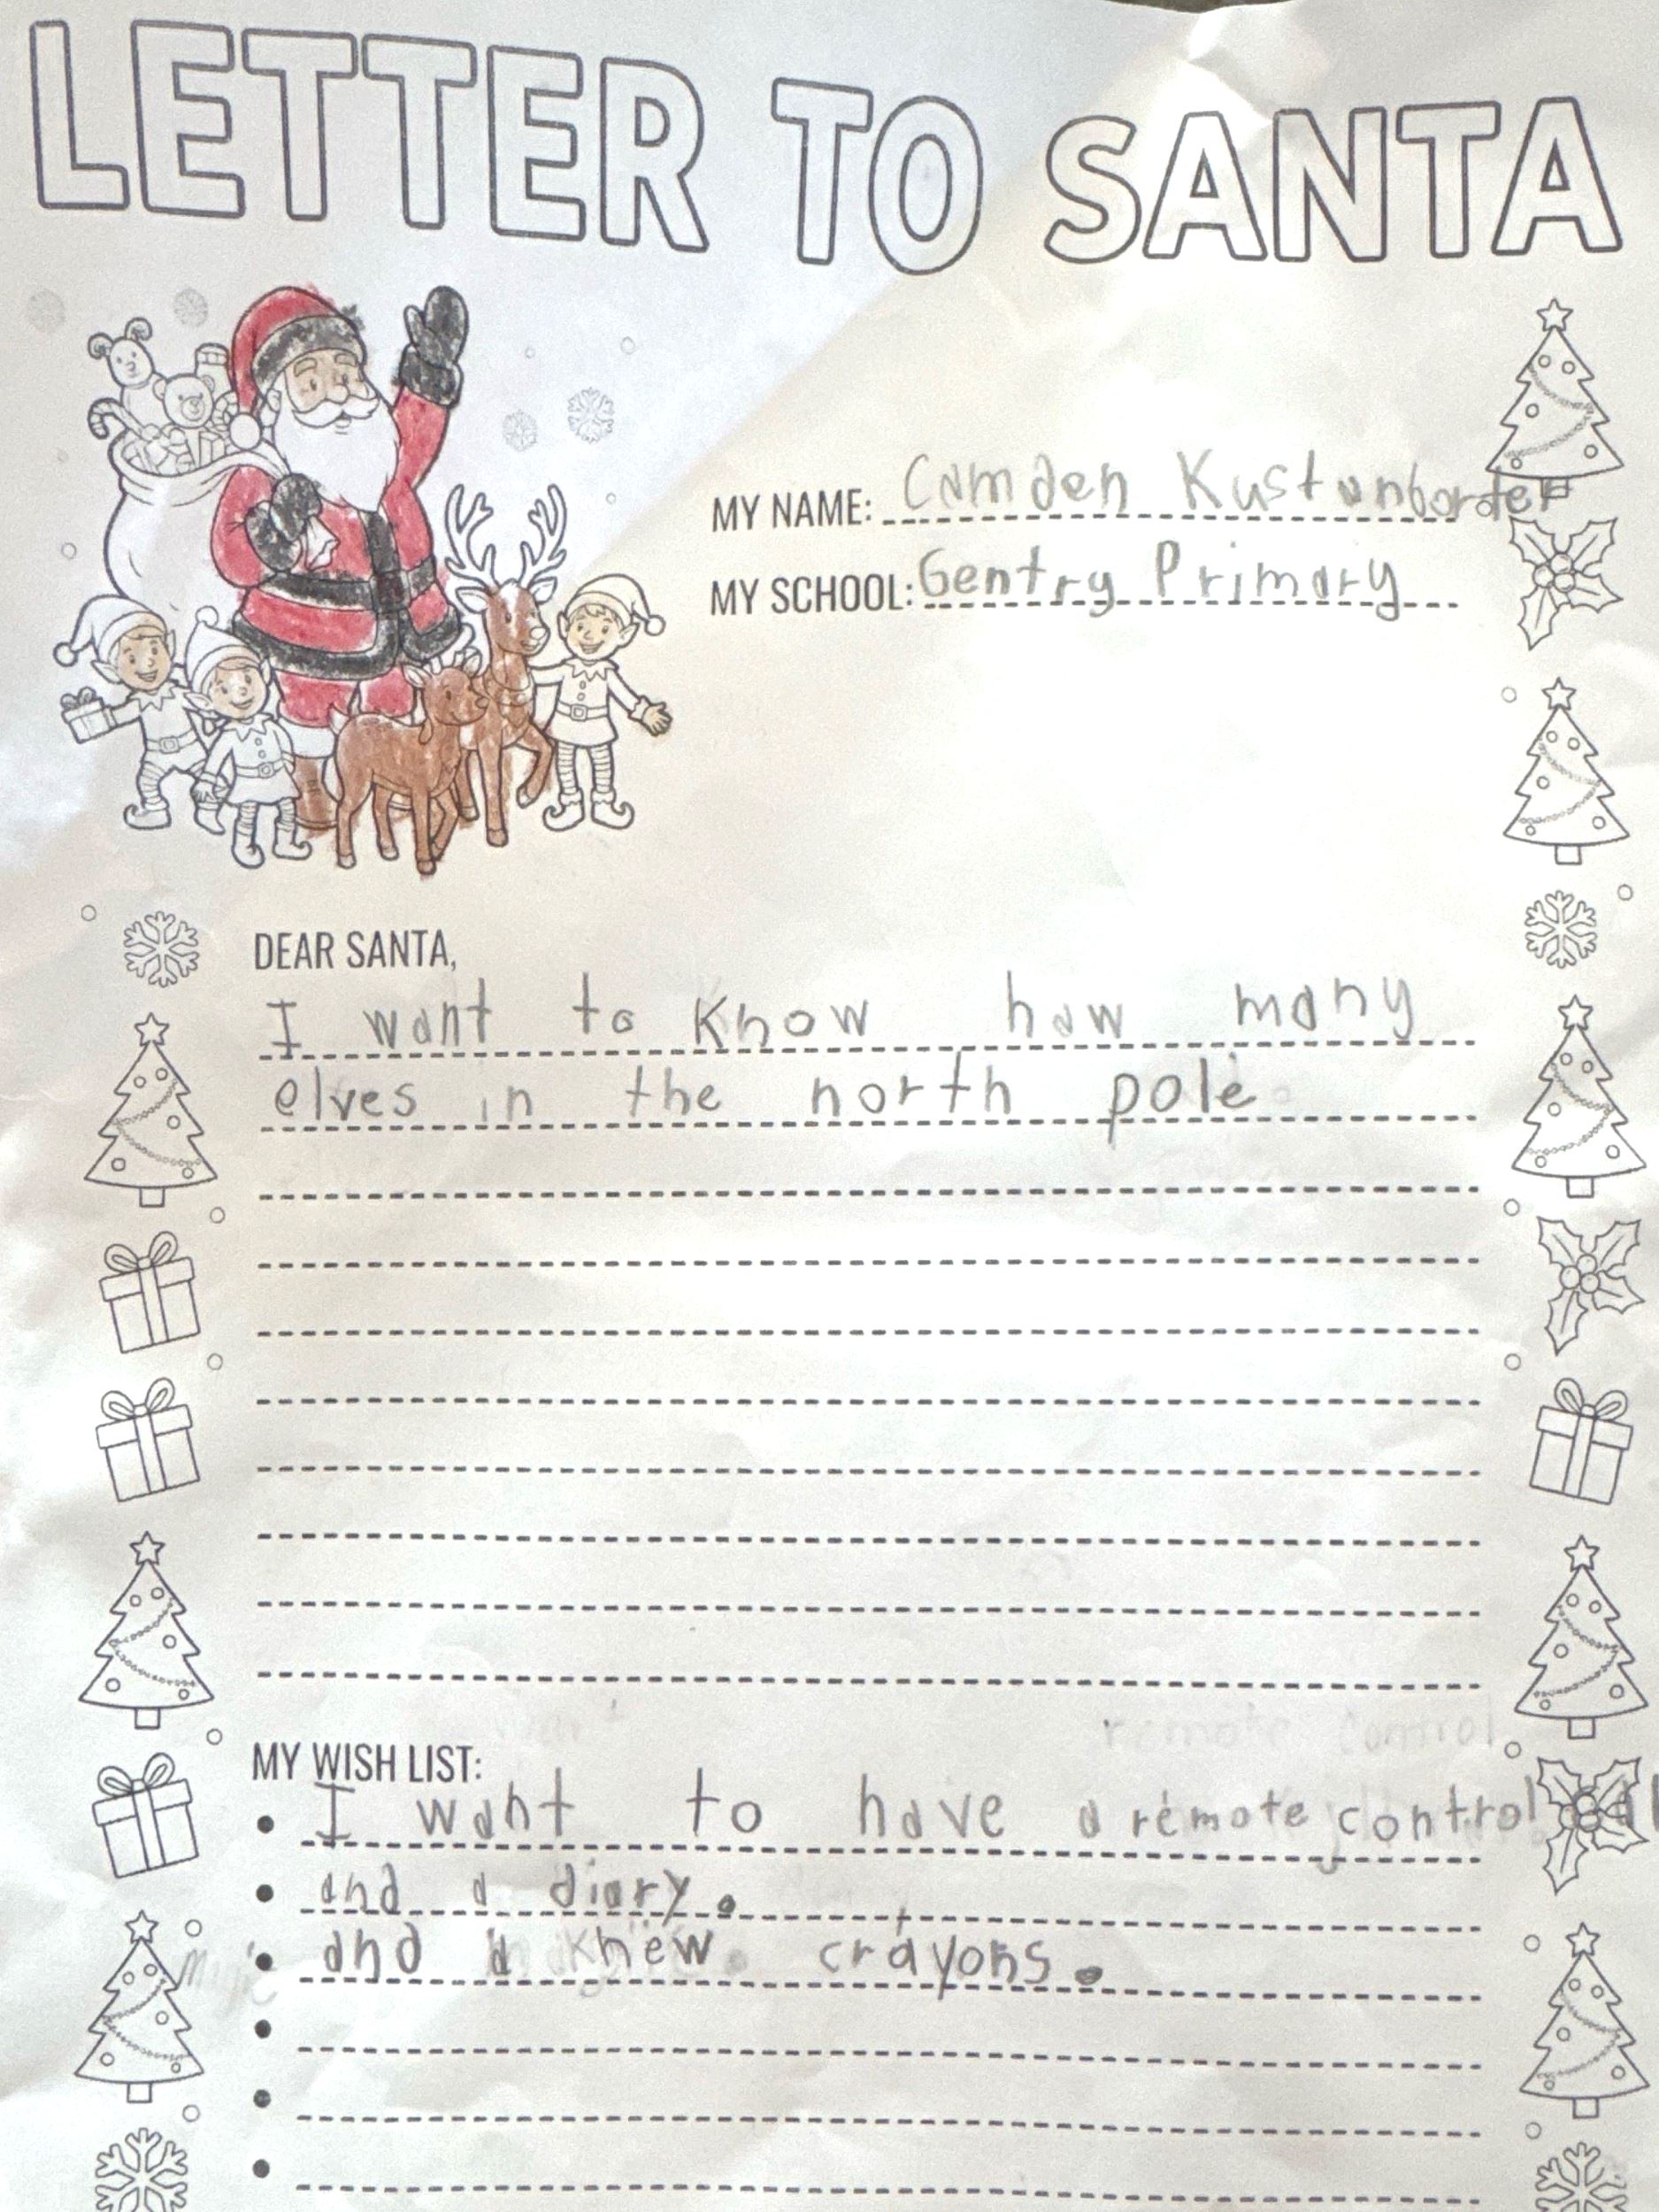 LETTER TO SANTA
MY NAME: Camden Kustanborder
MY SCHOOL: Gentry Primary
DEAR SANTA,
I want to Know how many
elves in the north pole
remote control
MY WISH LIST:
• I want to have a remote control
• and a diary.
• and a knew crayons.